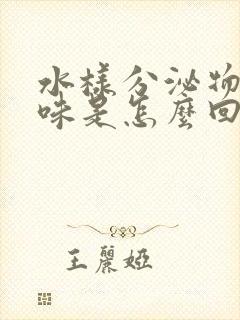 水樣分泌物
味是怎麼回
王麗婭